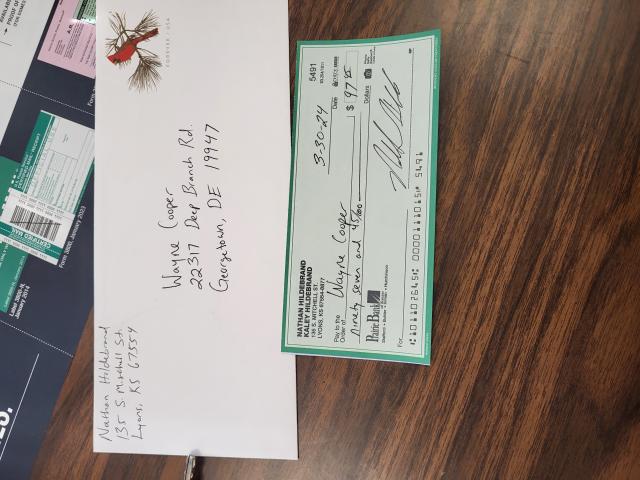 Nathan Hildebrand
135 S. Mitchell St.
Lyons, KS 67554
FOREVER / USA
Wayne Cooper
22317 Deep Branch Rd.
Georgetown, DE 19947
NATHAN HILDEBRAND
KALEY HILDEBRAND
135 S. MITCHELL ST.
LYONS, KS
5491
3-30-24 Date
Pay to the
Order of Wayne Cooper $ 97.45
Ninety seven and 45/100 Dollars
Prairie Bank
For
5491
CERTIFIED MAIL
Form 3800, January 2023
Label 3800-N,